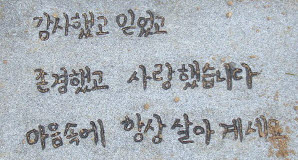 감사했고 믿었고
존경했고 사랑했습니다
마음속에 항상 살아 계세요